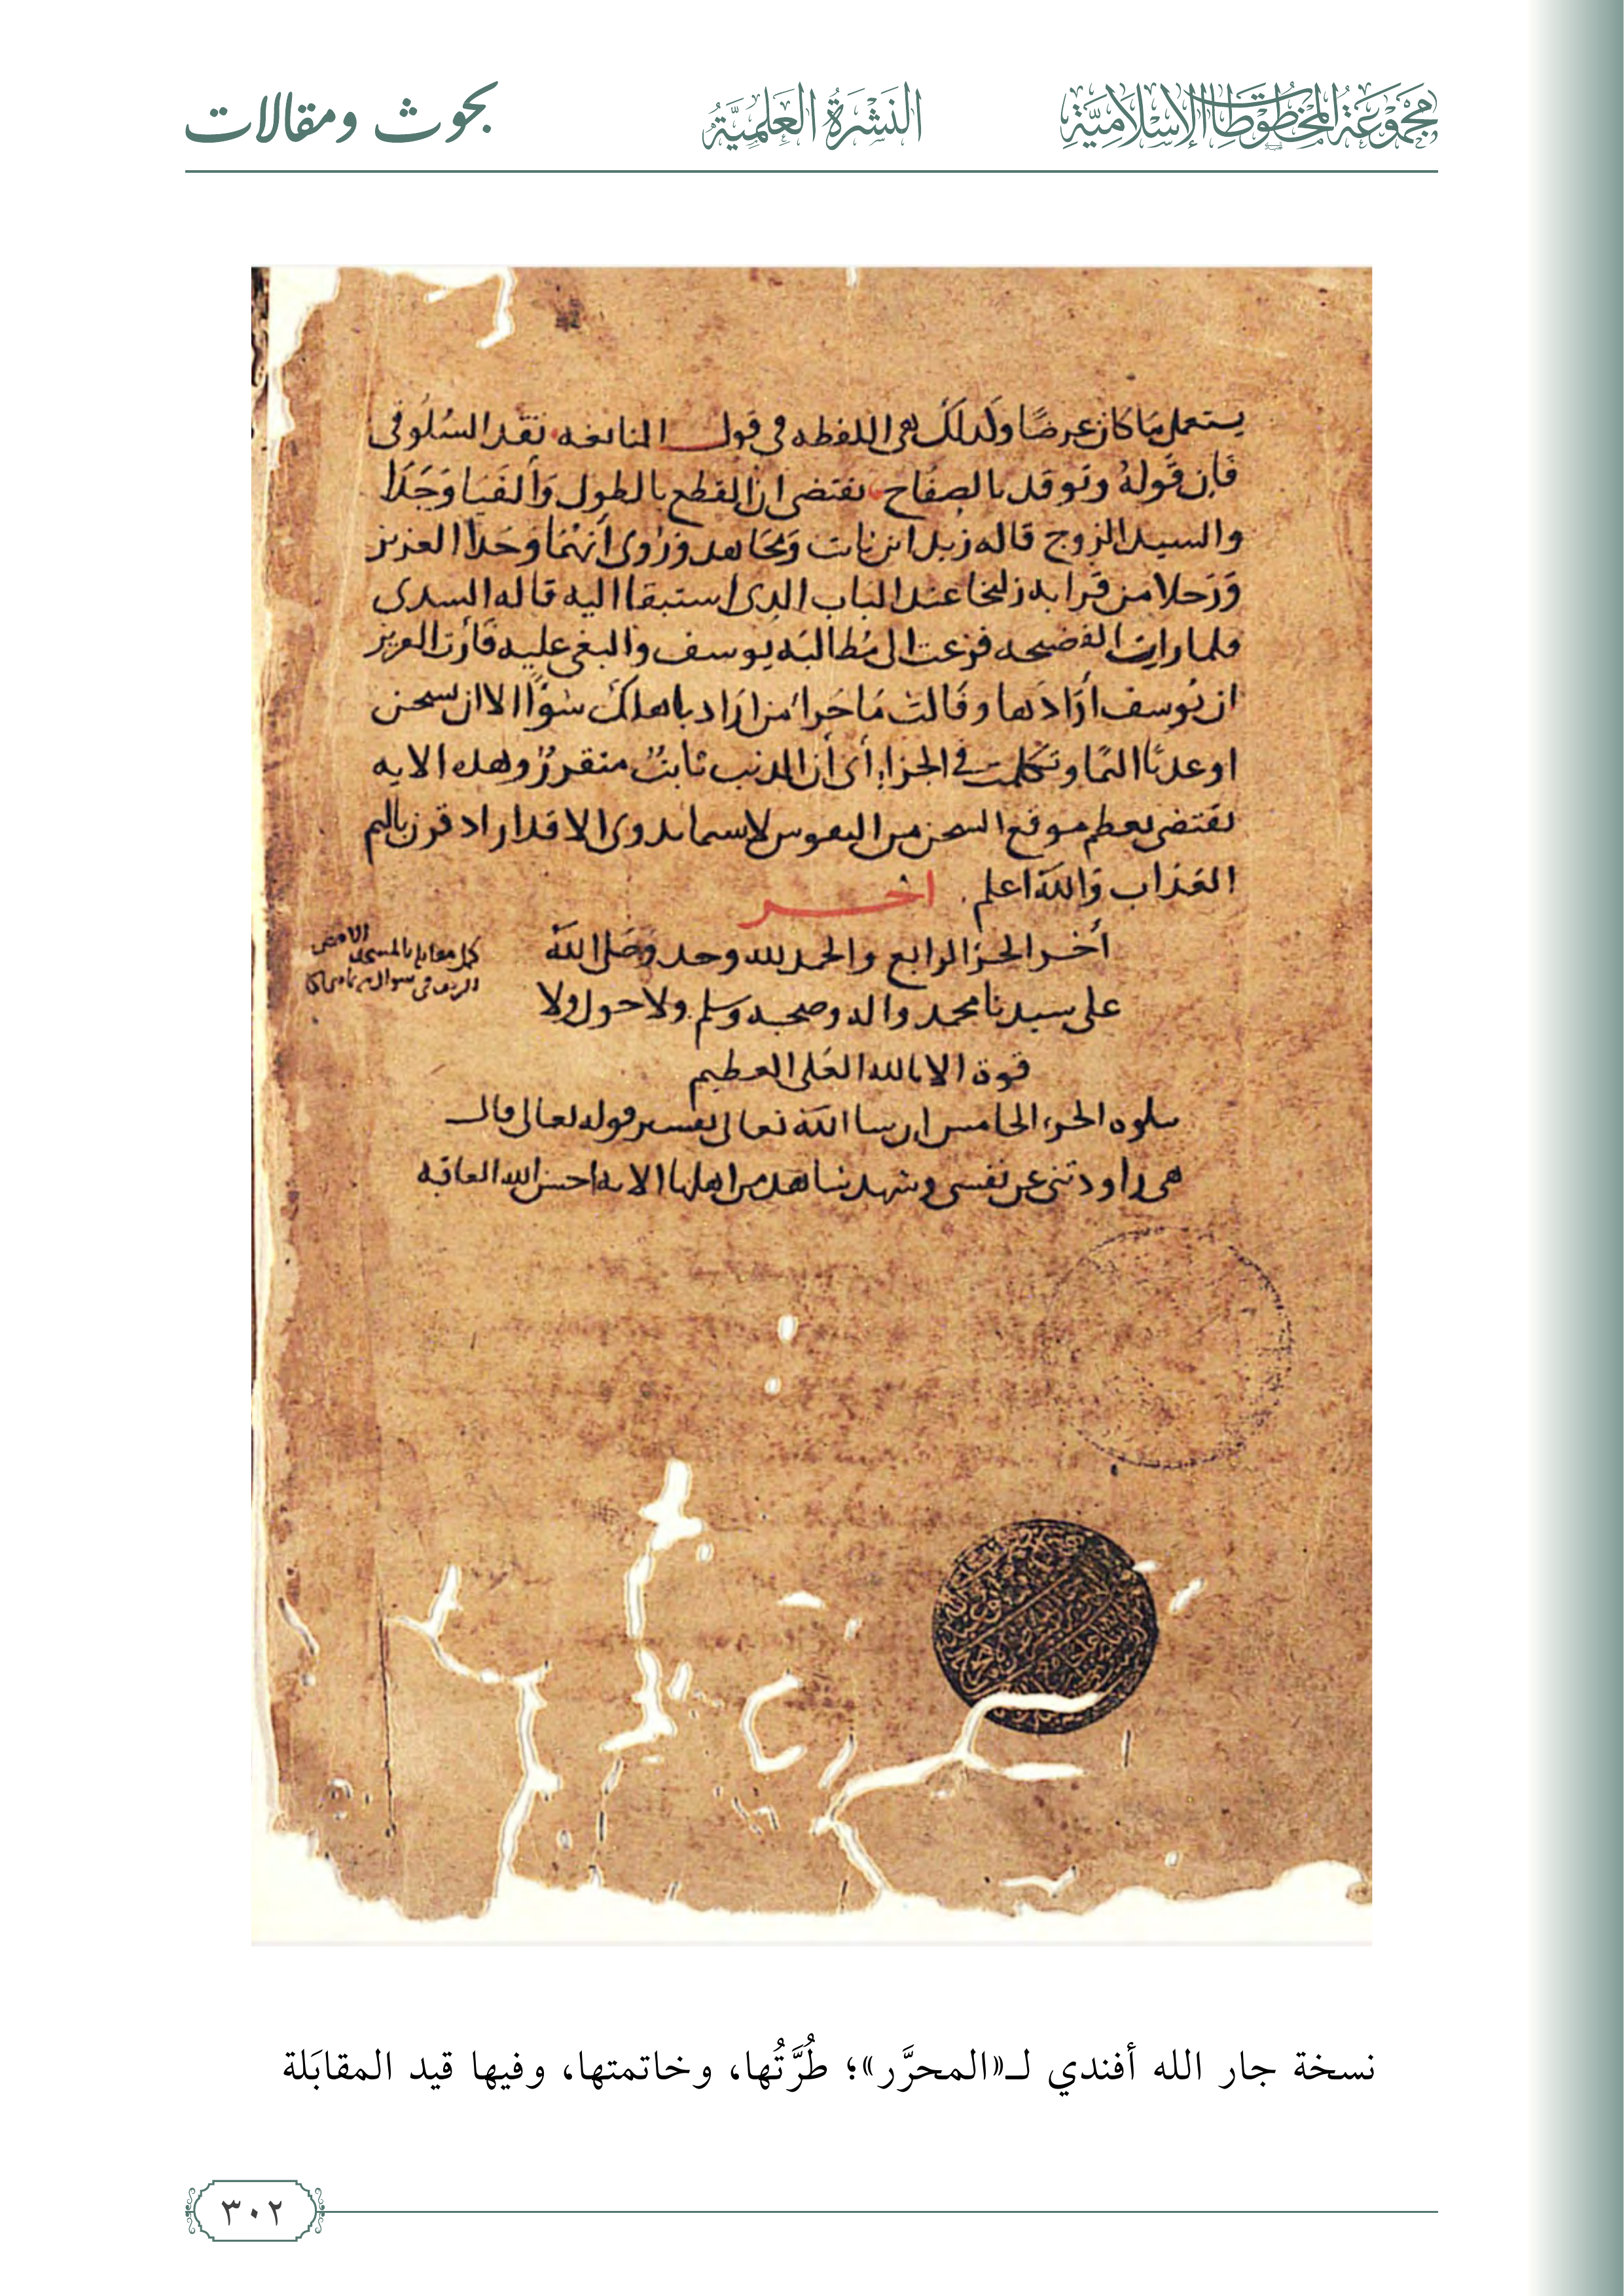 مجموعة المخطوطات الإسلامية
النشرة العلمية
بحوث ومقالات
يستعمل ما كان عرضا ولذلك هي اللفظه في قول النابغه تقد السلوقي
فإن قوله وتوقد بالصفاح يقتضي ان القطع بالطول وألفيا وجدا
والسيد الزوج قاله زيد ابن ثابت ومجاهد وروى أنهما وجدا العزيز
ورجلا من قرابه زليخا عند الباب الذي استبقا اليه قاله السدي
فلما رات الفضيحه فزعت الى مطالبه يوسف والبغي عليه فأرت العزيز
ان يوسف أرادها وقالت ما جزاء من اراد باهلك سوءا الا ان يسجن
او عذابا اليما وتكلمت في الجزاء أي أن الذنب ثابت متقرر وهذه الايه
تقتضي بعظم موقع السجن من النفوس لا سيما بذوي الاقدار اذ قرن باليم
العذاب والله اعلم
اخر
أخر الجزء الرابع والحمد لله وحده وصلى الله
على سيدنا محمد واله وصحبه وسلم ولا حول ولا
قوة الا بالله العلي العظيم
يتلوه الجزء الخامس ان شا الله تعالى تفسير قوله تعالى قال
هي راودتني عن نفسي وشهد شاهد من اهلها الايه احسن الله العاقبه
كمل مقابله بالمسجد الاقصى
الشريف في شوال
نسخة جار الله أفندي لـ«المحرَّر»؛ طُرَّتُها، وخاتمتها، وفيها قيد المقابَلة
٣٠٢